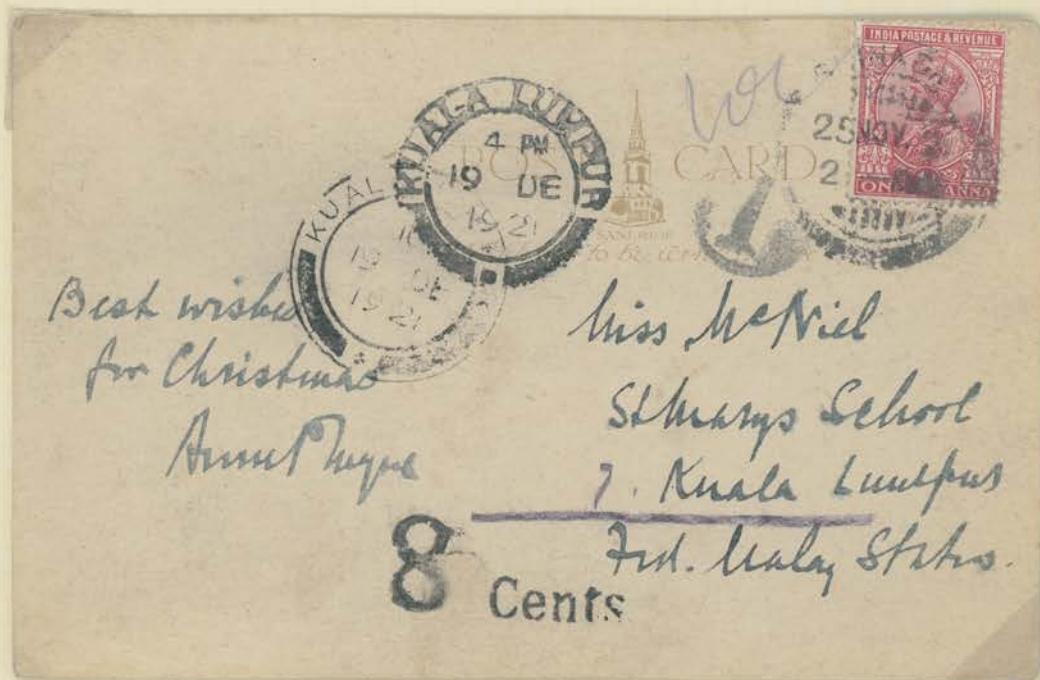 INDIA POSTAGE & REVENUE
ONE ANNA
25 NOV.
2
T
KUALA LUMPUR
4 PM
19 DE
1921
KUAL
19 DE
1921
POST CARD
to be
Best wishes
for Christmas
Miss McNiel
St Marys School
Kuala Lumpur
Fed. Malay States.
8
Cents